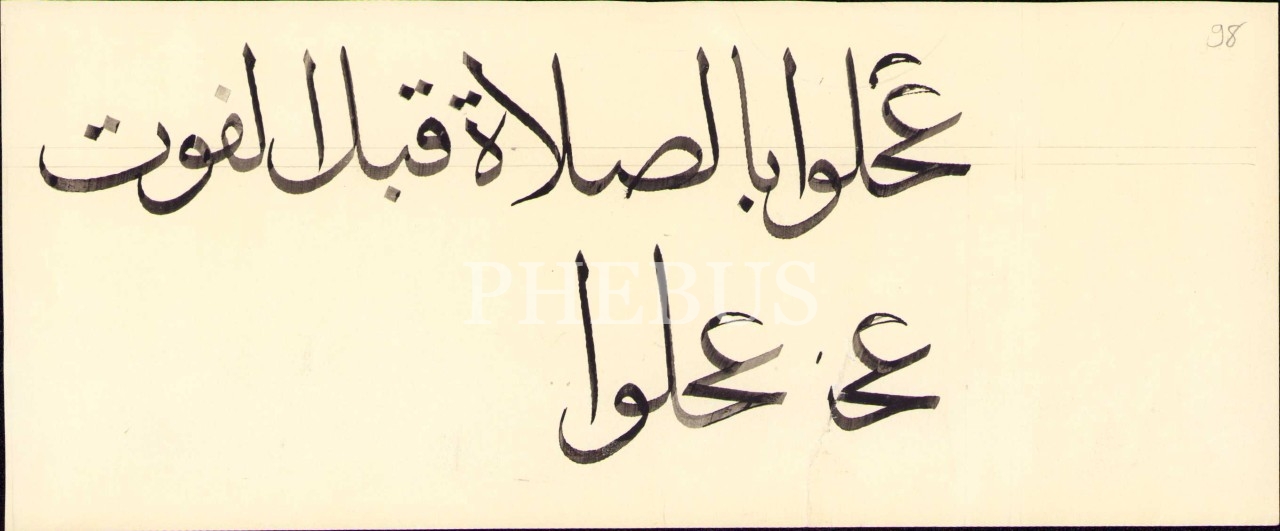 98
عجلوا بالصلاة قبل الفوت
عجلوا
PHEBUS